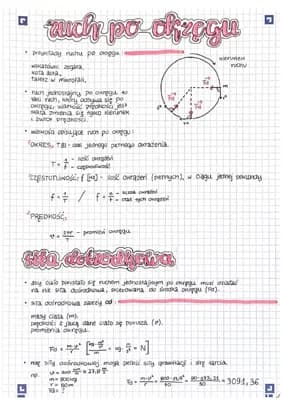 ruch po okręgu
• przykłady ruchu po okręgu:
wskazówki zegara,
koła auta,
talerz w mikrofali,
kierunek
ruchu
• ruch jednostajny po okręgu to
taki ruch, który odbywa się po
okręgu, wartość prędkości jest
stała zmienia się tylko kierunek
i zwrot prędkości.
• wielkości opisujące ruch po okręgu:
OKRES, T[s] - czas jednego pełnego okrążenia.
T = 1/f
- ilość okrążeń
- częstotliwość
CZĘSTOTLIWOŚĆ, f [Hz] - ilość okrążeń (pełnych), w ciągu jednej sekundy
f = 1/T / f = n/t
- liczba okrążeń
- czas tych okrążeń
PRĘDKOŚĆ,
v = 2πr/T - promień okręgu
siła dośrodkowa
• aby ciało poruszało się ruchem jednostajnym po okręgu musi działać
na nie siła dośrodkowa, skierowana do środka okręgu (Fd).
• siła dośrodkowa zależy od:
masy ciała (m).
prędkości z jaką dane ciało się porusza (v).
promienia okręgu.
Fd = m·v²/r
= N]
• rolę siły dośrodkowej mogą pełnić siły grawitacji i siły tarcia.
np.
m = 800kg
r = 60m
Fd = ?
Fd = m·v²/r
= 3091,36